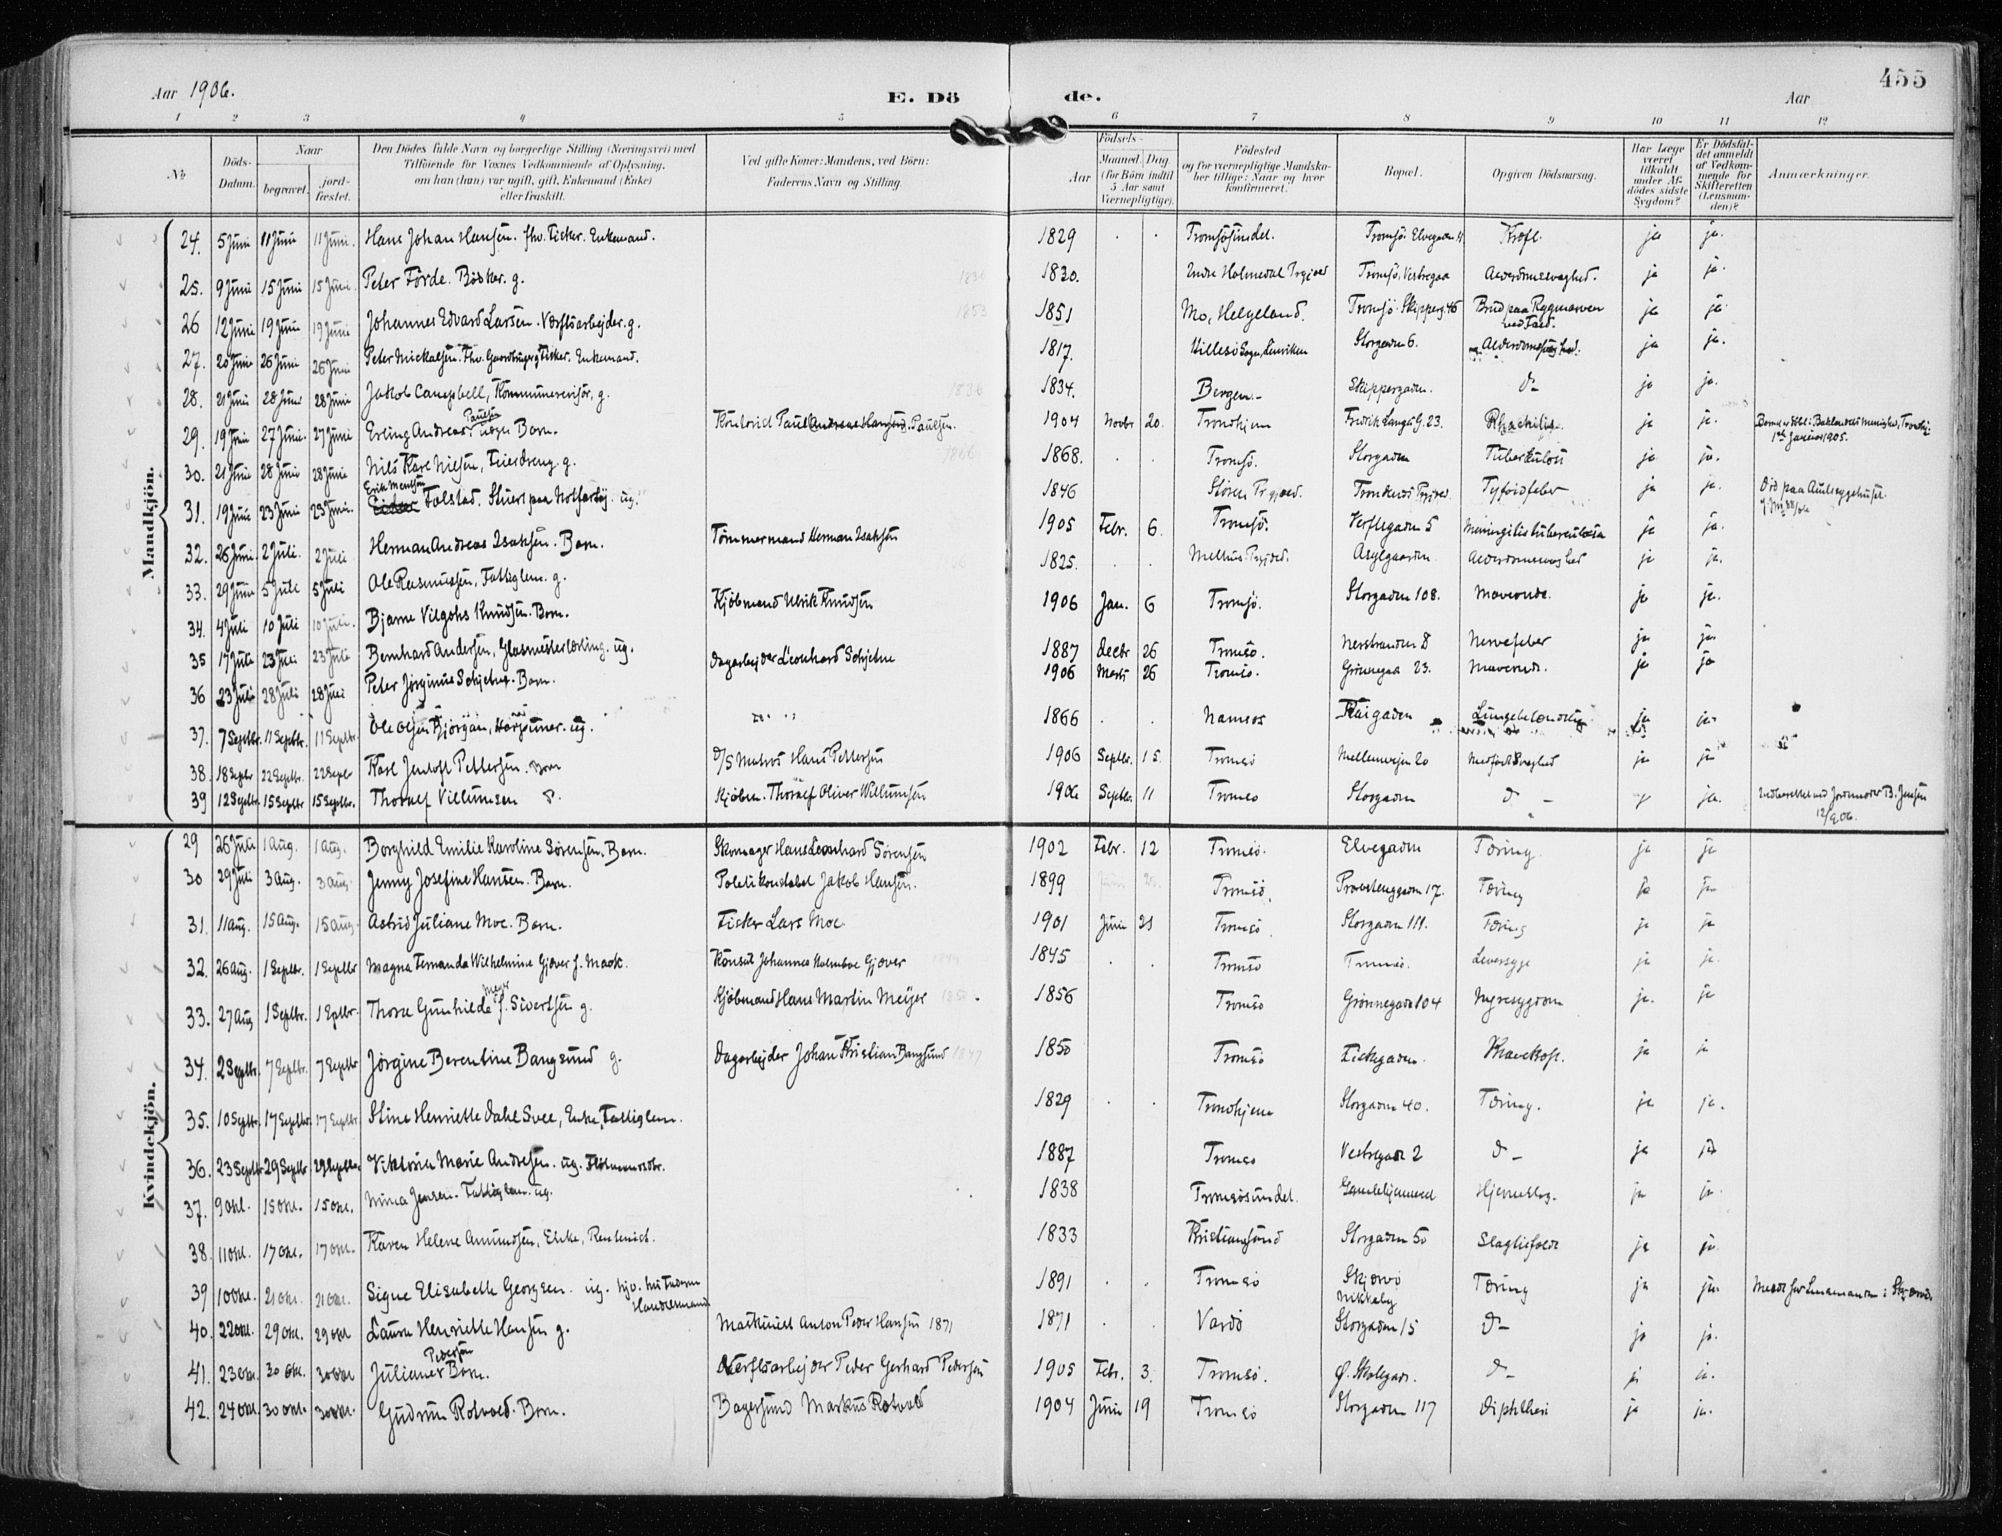 455
Aar 1906.
E. Dö de.
Aar
1 2 3 4 5 6 7 8 9 10 11 12
No
Döds-Datum.
Naar
begravet.
jord-fæstet.
Den Dödes fulde Navn og borgerlige Stilling (Næringsvei) med
Tilföiende for Voxnes Vedkommende af Oplysning,
om han (hun) var ugift, gift, Enkemand (Enke)
eller fraskilt.
Ved gifte Koner: Mandens, ved Börn:
Faderens Navn og Stilling.
Födsels-
Aar
Maaned. Dag.
(for Börn indtil
5 Aar samt
Værnepligtige).
Födested
og for værnepligtige Mandska-
ber tillige: Naar og hvor
konfirmeret.
Bopæl.
Opgiven Dödsaarsag.
Har Læge
været
tilkaldt
under Af-
dödes sidste
Sygdom?
Er Dödsfal-
det anmeldt
af Vedkom-
mende for
Skifteretten
(Lensman-
den)?
Anmærkninger.
Mandkjön.
24. 5 Juni 11 Juni 11 Juni. Hans Johan Hansen. fhv. Fisker. Enkemand. 1829 . . Tromsösundet. Tromsö. Elvegaden Kræft. ja ja.
25. 9 Juni 15 Juni 15 Juni Peter Förde. Bödker. g. 1830. Indre Holmedal Prgjeld Tromsö, Vestregaa Alderdomssvaghed. ja ja.
26 12 Juni 19 Juni 19 Juni Johannes Edvard Larsen. Værftsarbejder. g. 1853 1851 Mo, Helgeland. Tromsö. Skipperg. 46 Brud paa Rygmarven ved Fald. ja ja.
27. 20 Juni 26 Juni 26 Juni Peter Mickalsen. Fhv. Gaardbruger og Fisker. Enkemand. 1817. Hillesö Sogn, Lenviken Storgaden 6. Alderdomssvaghed. ja ja.
28. 21 Juni 28 Juni 28 Juni Jakob Campbell, Kommunerevisor, g. 1836 1834. Bergen.- Skippergaden. d- ja ja.
29. 19 Juni 27 Juni. 27 Juni Erling Andreas Paulsen Barn. Kontorist Paul Andreas Hansen Paulsen. 1904 Novbr 20. Trondhjem Fredrik Langes G. 23. Rhachitis. ja ja. Barnet er döbt i Baklandets Menighed, Trondhj. 1ste Januar 1905.
30. 21 Juni 28 Juni 28 Juni Nils Kare Nilsen, g. 1866 1868. . . Tromsö. Storgaden Tuberkulose ja ja.
31. 19 Juni 23 Juni 23 Juni. Folstad. Stuert paa ug. 1846 Stören Prgjeld. Trondenes Prgjeld. Tyfoidfeber ja ja. Död paa Amtssygehuset.
32. 26 Juni. 2 Juli. 2 Juli. Herman Andreas Isaksen. Barn. Tömmermand Herman Isaksen 1905 Febr. 6. Tromsö. Verftsgaden 5 Meningitis tuberculosa ja ja.
33. 29 Juni 5 Juli 5 Juli Ole Rasmussen, Fattiglem. g. 1825. . . Melhus Prgjeld. Asylgaarden. Alderdomssvaghed ja ja.
34. 4 Juli 10 Juli 10 Juli. Bjarne Vilgohs Knudsen. Barn. Kjöbmand Ulrik Knudsen 1906 Jan. 6 Tromsö. Storgaden 108. Maveonde. ja ja.
35 17 Juli 23 Juli 23 Juli Bernhard Andersen, Glasmesterlærling. ug. 1887 Decbr 26 Tromsö. Nerstranden 8 Nervefeber ja ja.
36 23 Juli 28 Juli 28 Juli Peter Jörginus Schjelne. Barn. Dagarbejder Leonhard Schjelne 1906 Marts 26 Tromsö. Grönnegad 23. Maveonde. ja ja
37. 7 Septbr. 11 Septbr. 11 Septbr. Ole Olsen Björgan, ug. 1866 . . Namsos Lungebetændelse ja ja.
38. 18 Septbr 22 Septbr. 22 Septbr Karl Jentoft Pettersen. Barn D/S Matros Hans Pettersen 1906 Septbr. 15. Tromsö Mellemvejen 20 Medfödt Svaghed ja ja
39 12 Septbr. 15 Septbr 15 Septbr. Thoralf Villumsen d. Kjöbm. Thoralf Oliver Willumsen 1906 Septbr. 11 Tromsö Storgaden d - ja. Indberettet ved Jordmoder B. Jensen 12/9 06.
Kvindekjön.
29 26 Juli 1 Aug. 1 Aug. Borghild Emilie Karoline Sörensen. Barn. Skomager Hans Leonhard Sörensen 1902 Febr. 12 Tromsö. Elvegaden Tæring. ja ja
30 29 Juli 3 Aug. 3 Aug. Jenny Josefine Hansen. Barn. Politikonstabel Jakob Hansen. 1899 Tromsö. Prostenggaden 17. Tæring ja ja.
31. 11 Aug. 15 Aug. 15 Aug. Astrid Juliane Moe. Barn. Fisker Lars Moe. 1901 Juni 21 Tromsö. Storgaden 111. Tæring ja ja
32. 26 Aug. 1 Septbr. 1 Septbr Magna Fernanda Wilhelmine Gjæver f. Mack. Konsul Johannes Holmboe Gjæver 1845 . . Tromsö Tromsö. Leversyge ja ja.
33. 27 Aug 1 Septbr. 1 Septbr. Thora Gunhilde Meyer f. Sivertsen g. Kjöbmand Hans Martin Meijer 1856 Tromsö Grönnegad 104 Nyresygdom ja. ja
34. 2 Septbr. 7 Septbr. 7 Septbr Jörgine Berentine Bangsund g. Dagarbejder Johan Kristian Bangsund 1847 1850 Tromsö Fiskegaden. Kræft. ja ja
35. 10 Septbr. 17 Septbr. 17 Septbr. Stine Henriette Dahl Svee, Enke, Fattiglem. 1829 . . Trondhjem Storgaden 40. Tæring. ja ja.
36. 23 Septbr 29 Septbr 29 Septbr. Viktoria Marie Andresen. ug. 1887 Tromsö Vestregad 2 d - ja ja
37. 9 Okt. 15 Okt. 15 Okt. Nina Jensen. Fattiglem. ug. 1838 Tromsösundet. Gamlehjemmet Hjerneslag. ja ja.
38. 11 Okt. 17 Okt. 17 Okt. Karen Helene Amundsen, Enke, Rentenist. 1833 Kristiansund Storgaden 50 Slagtilfælde ja ja.
39 10 Okt. 21 Okt. 21 Okt. Signe Elisabeth Georgsen. ug. hjv. hos Faderen Handelsmand 1891 . . Tromsö Skjærvö Nikkeby Tæring ja ja. Meldt for Lensmanden i Skjærvö.
40. 22 Okt. 29 Okt. 29 Okt Laura Henriette Hansen g. Maskinist Anton Peder Hansen 1871 1871 . . Vardö Storgaden 15 d- ja ja.
41. 23 Okt. 30 Okt. 30 Okt Juliane Pedersen Barn. Værftsarbejder Peder Gerhard Pedersen 1905 Febr. 3. Tromsö. Ø. Skolegad. d- ja ja.
42. 24 Okt. 30 Okt. 30 Okt. Gudrun Rotvold. Barn. Bagersvend Markus Rotvold 1904 Juni 19 Tromsö Storgaden 117 Diphtheri ja ja.